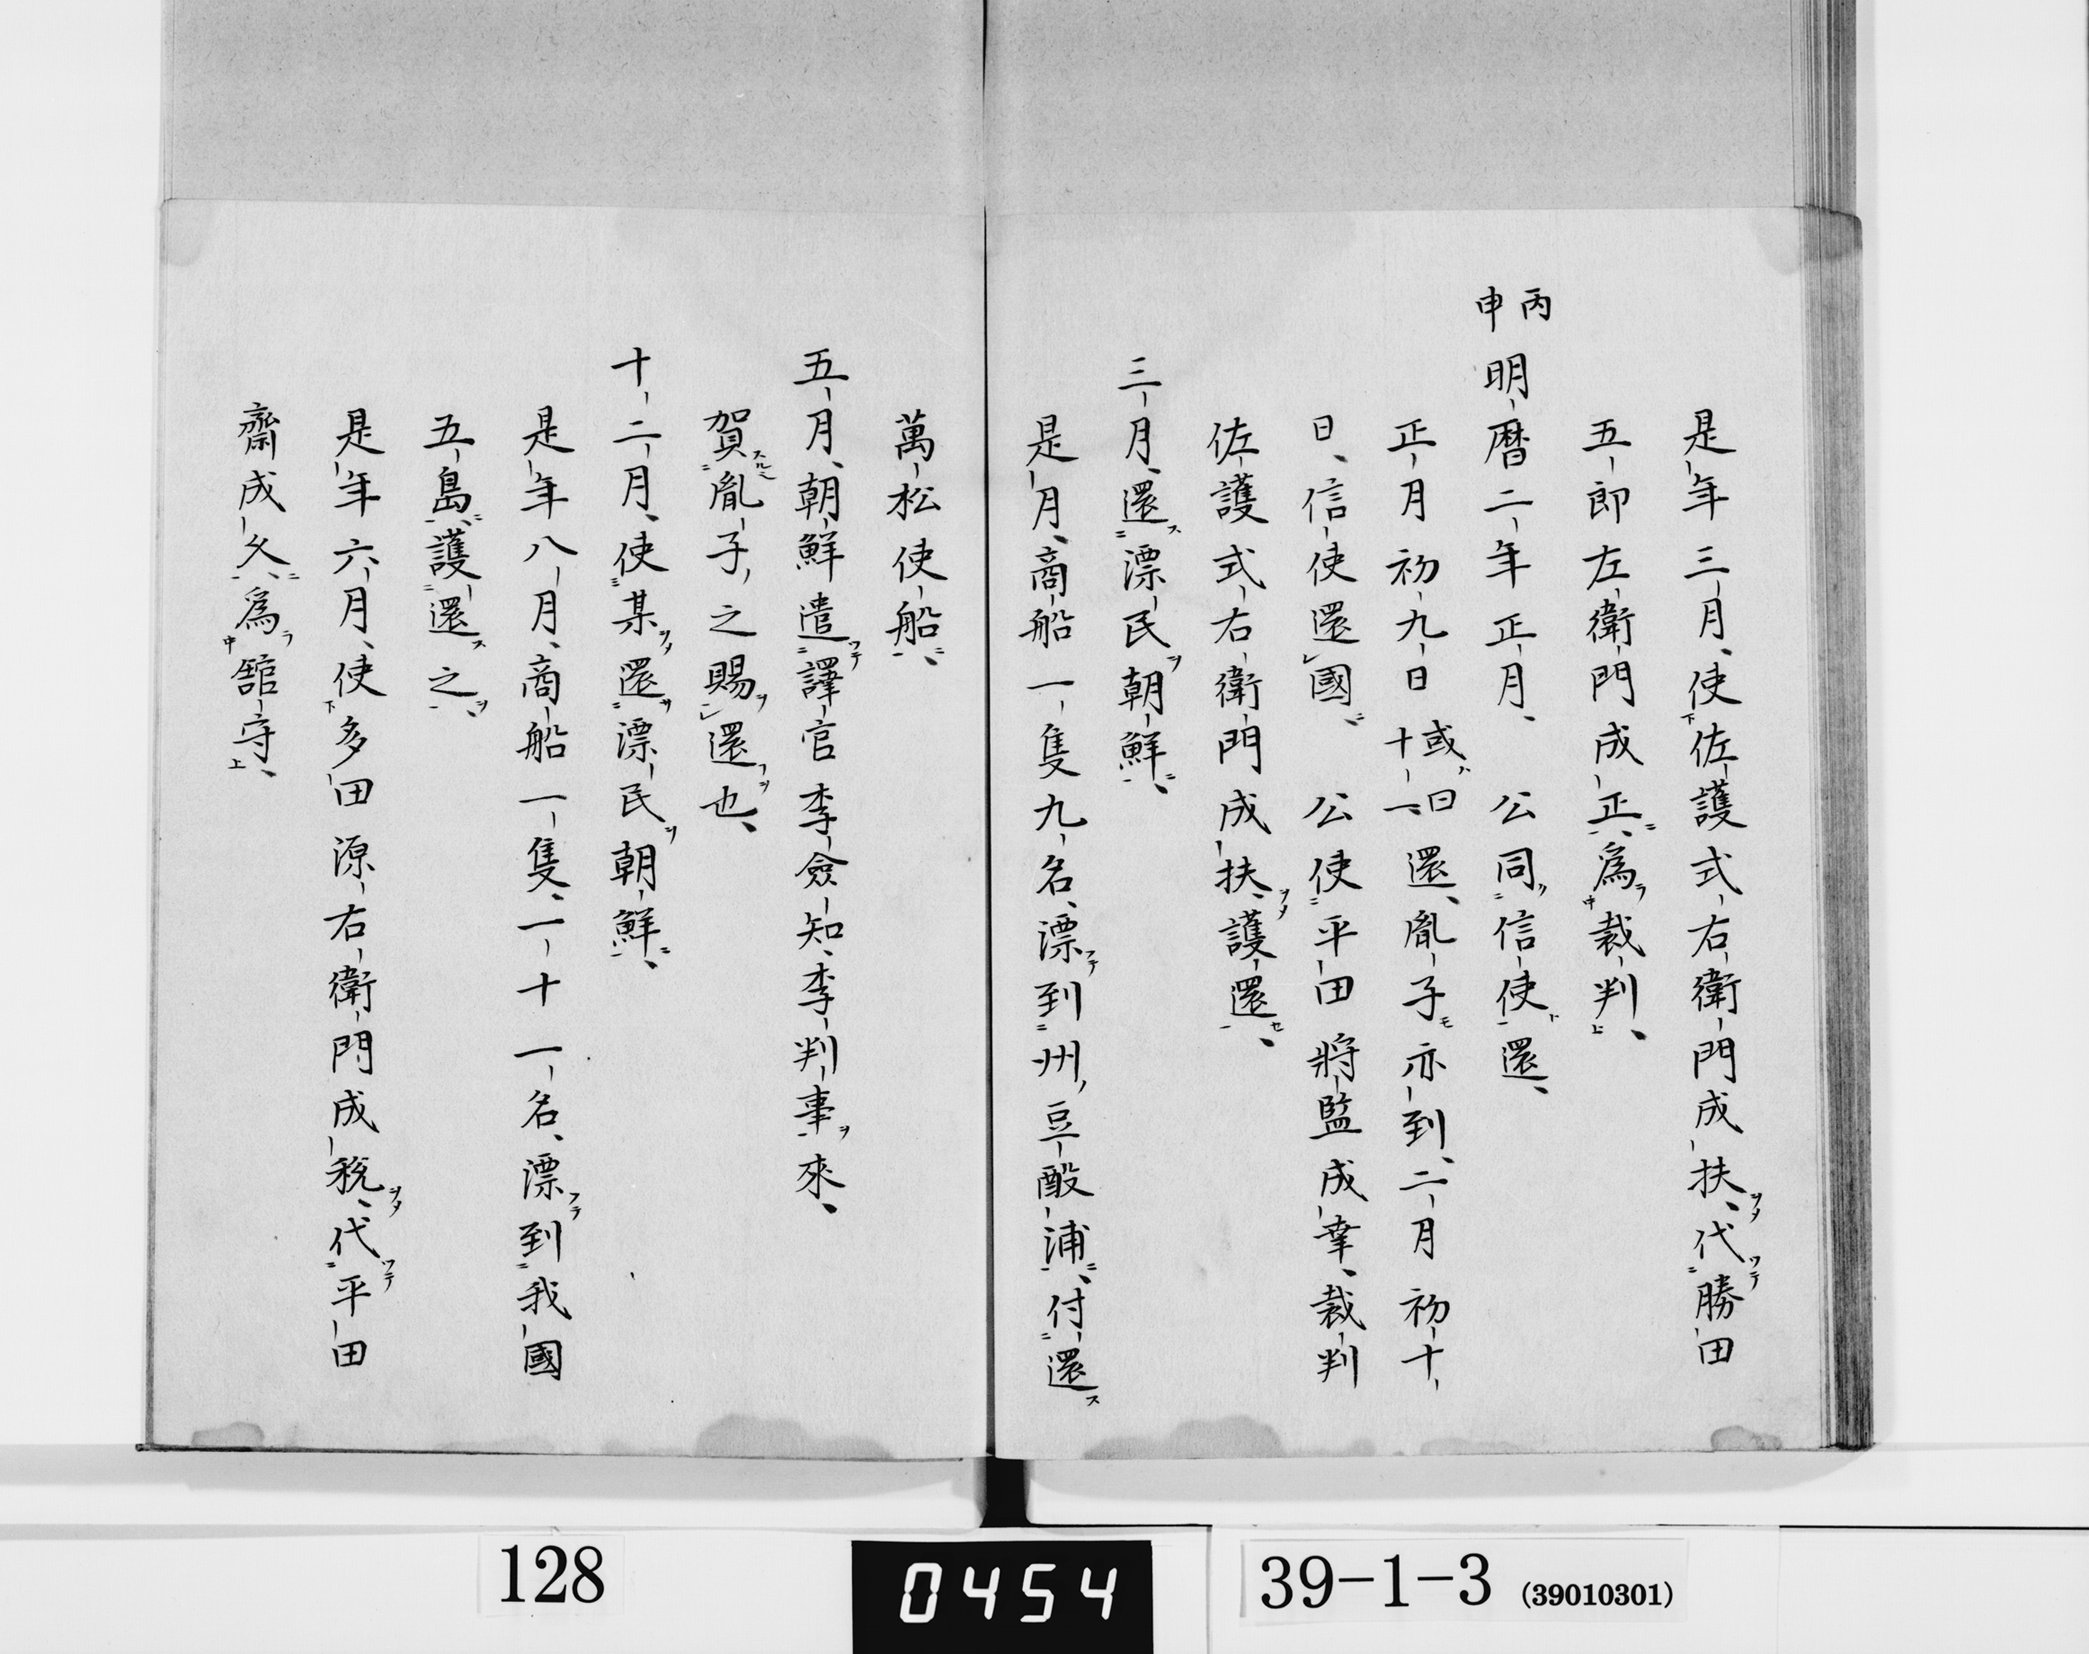 是年三月、使佐護式右衛門成扶、代勝田
五郎左衛門成正、為裁判、
丙申
明暦二年正月、公同信使還、
正月初九日或曰十一還、胤子亦到、二月初十
日、信使還國公使平田將監成幸、裁判
佐護式右衛門成扶、護還、
三月、還漂民朝鮮、
是月、商船一隻九名、漂到州、豆酘浦、付還
萬松使船、
五月、朝鮮遣譯官李僉知、李判事來、
賀胤子之賜還也、
十二月、使某還漂民朝鮮、
是年八月、商船一隻、一十一名、漂到我國
五島、護還之、
是年六月、使多田源右衛門成稅、代平田
齋成久、為舘守、
128
0454
39-1-3 (39010301)